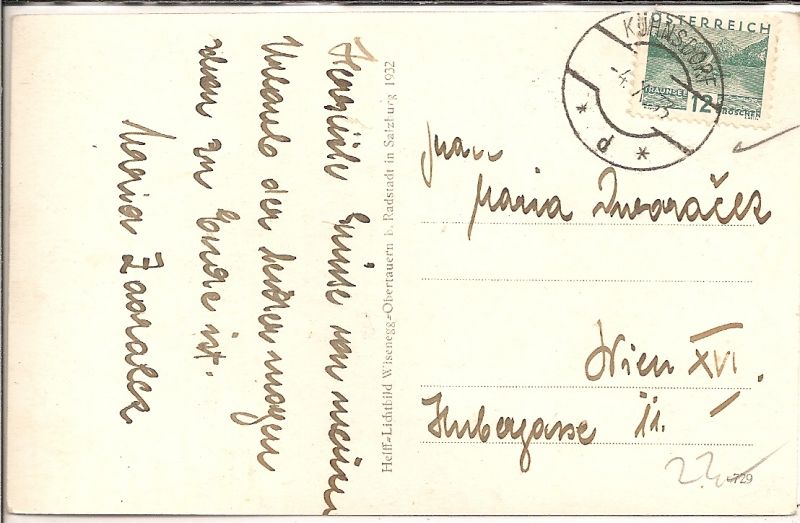 Herzliche Grüße von meinem
Urlaub der leider morgen
schon zu Ende ist.
Maria
Helff=Lichtbild Wisenegg=Obertauern b. Radstadt in Salzburg 1932
ÖSTERREICH
TRAUNSEE 12 GROSCHEN
KÜHNSDORF
* P *
Frau
Maria Dvoraček
Wien XVI.
Hubergasse 11.
729